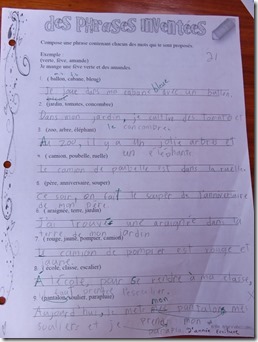 des Phrases inventées
Compose une phrase contenant chacun des mots qui te sont proposés.
Exemple :
(verte, fève, amande)
Je mange une fève verte et des amandes.
1. ( ballon, cabane, bleug)
bleue
Je joue dans ma cabane avec un ballon.
2. (jardin, tomates, concombre)
Dans mon jardin, je cueille des tomates
concombres
3. (zoo, arbre, éléphant)
Au zoo, il y a un jolie arbres et
un éléphant
4. ( camion, poubelle, ruelle)
Le camion de poubelle est dans la ruelle.
5. (père, anniversaire, souper)
Ce soir, on fait le souper de l'anniversaire
de mon père
6. ( araignée, terre, jardin)
J'ai trouvé une araignée dans la
terre de mon jardin
7. ( rouge, jaune, pompier, camion)
Le camion de pompier est rouge et
jaune
8. ( école, classe, escalier)
À l'école, pour se rendre à ma classe,
faut prendre l'escalier.
9. (pantalon, soulier, parapluie)
mon
Aujourd'hui, je met pantalon
souliers et je prend mon